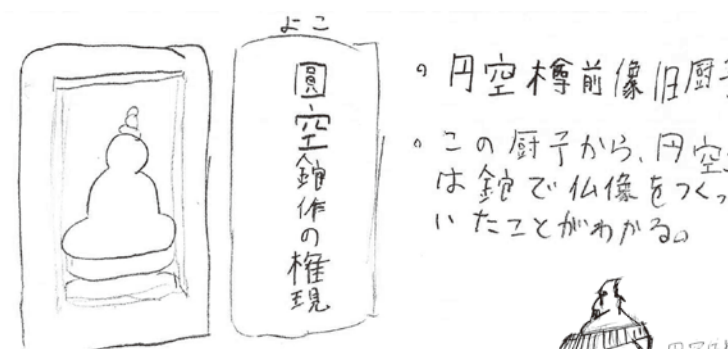 よこ
圓空鉈作の権現
円空樽前像旧厨子
この厨子から、円空
は鉈で仏像をつくっ
いたことがわかる。